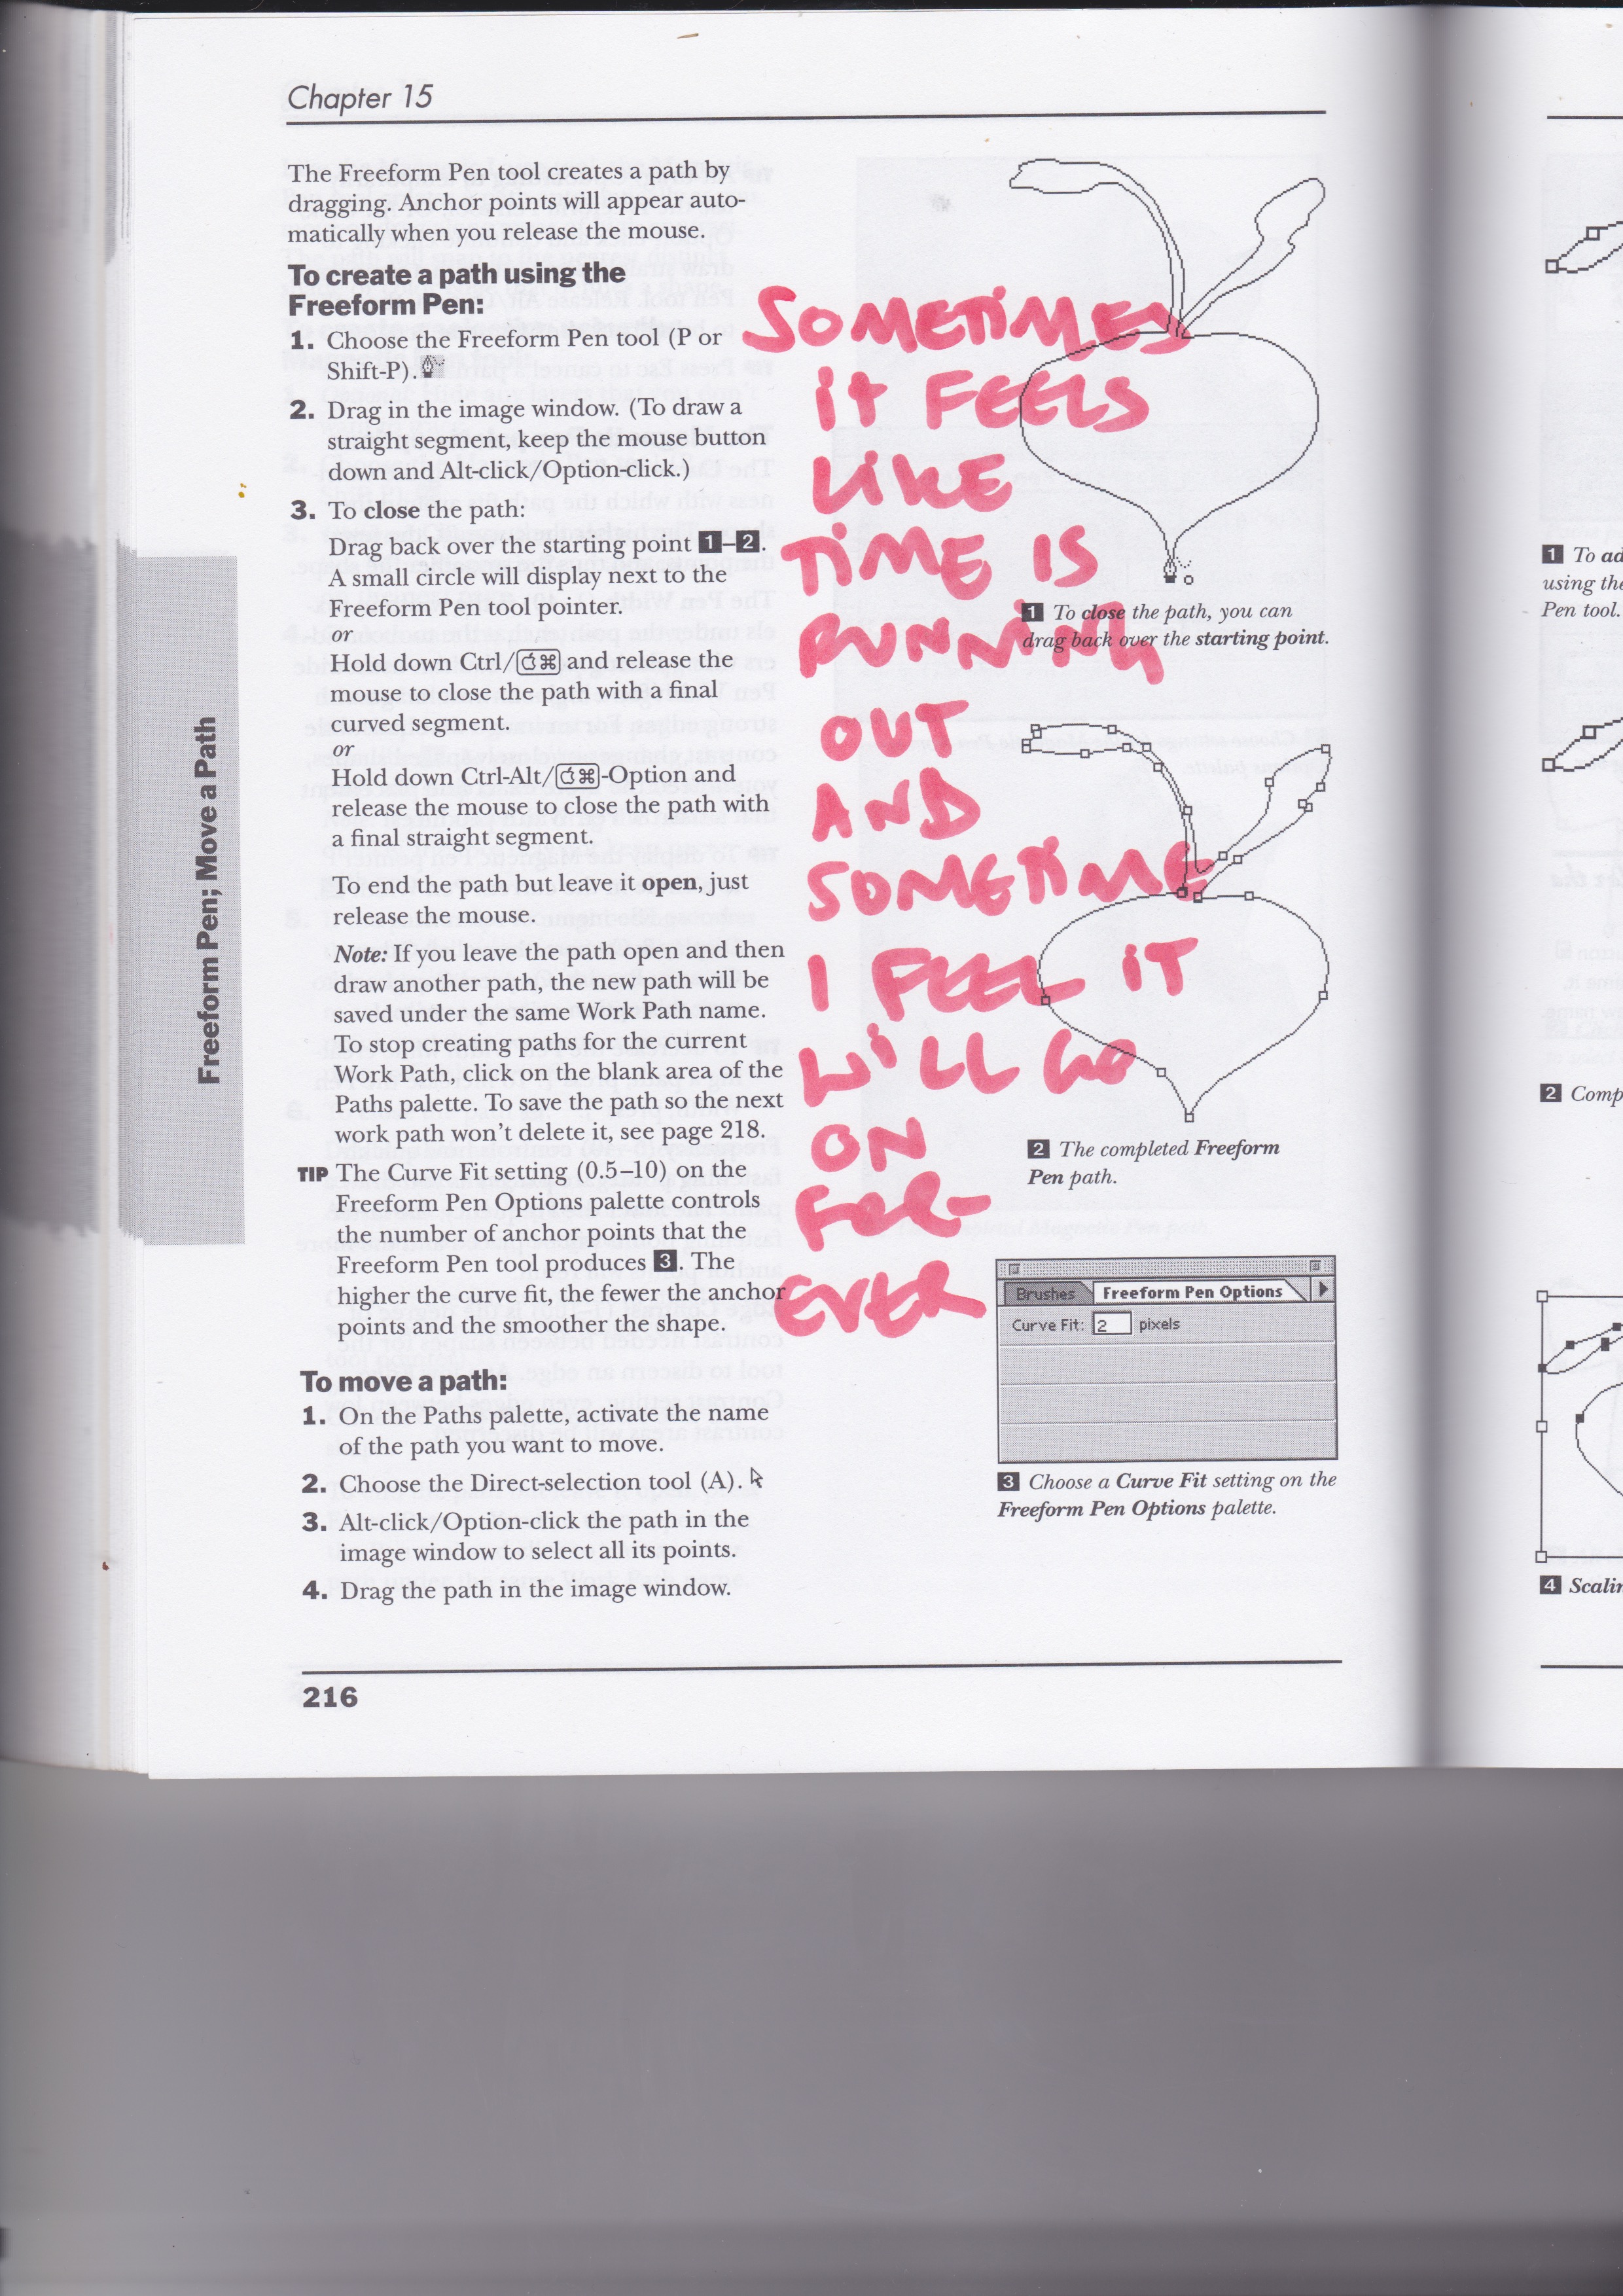 Chapter 15
The Freeform Pen tool creates a path by
dragging. Anchor points will appear auto-
matically when you release the mouse.
To create a path using the
Freeform Pen:
1. Choose the Freeform Pen tool (P or
Shift-P).
2. Drag in the image window. (To draw a
straight segment, keep the mouse button
down and Alt-click/Option-click.)
3. To close the path:
Drag back over the starting point 1–2.
A small circle will display next to the
Freeform Pen tool pointer.
or
Hold down Ctrl/⌘ and release the
mouse to close the path with a final
curved segment.
or
Hold down Ctrl-Alt/⌘-Option and
release the mouse to close the path with
a final straight segment.
To end the path but leave it open, just
release the mouse.
Note: If you leave the path open and then
draw another path, the new path will be
saved under the same Work Path name.
To stop creating paths for the current
Work Path, click on the blank area of the
Paths palette. To save the path so the next
work path won't delete it, see page 218.
TIP The Curve Fit setting (0.5–10) on the
Freeform Pen Options palette controls
the number of anchor points that the
Freeform Pen tool produces 3. The
higher the curve fit, the fewer the anchor
points and the smoother the shape.
To move a path:
1. On the Paths palette, activate the name
of the path you want to move.
2. Choose the Direct-selection tool (A).
3. Alt-click/Option-click the path in the
image window to select all its points.
4. Drag the path in the image window.
216
Freeform Pen; Move a Path
SOMETIMES
iT FEELS
LiKE
TiME IS
RUNNiNG
OUT
AND
SOMETiME
I FEEL iT
WiLL GO
ON
FOR-
EVER
1 To close the path, you can
drag back over the starting point.
2 The completed Freeform
Pen path.
Brushes Freeform Pen Options
Curve Fit: 2 pixels
3 Choose a Curve Fit setting on the
Freeform Pen Options palette.
1 To ad
using the
Pen tool.
2 Comp
4 Scalin